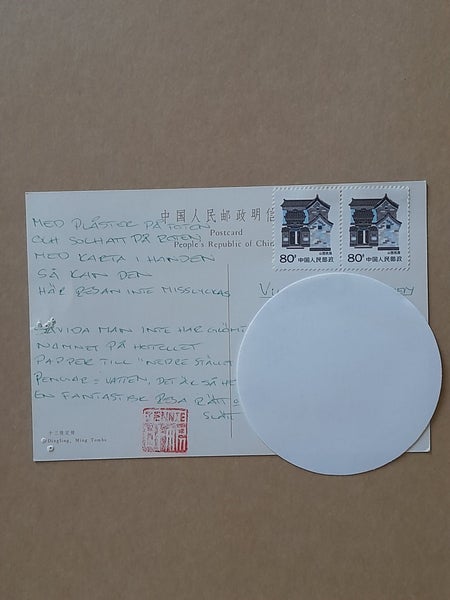 中国人民邮政明信
Postcard
People's Republic of Chin
80分 中国人民邮政
80分 中国人民邮政
MED PLÅSTER PÅ FOTEN
OCH SOLHATT PÅ ROTEN
MED KARTA I HANDEN
SÅ KAN DEN
HÄR RESAN INTE MISSLYCKAS
SÅVIDA MAN INTE HAR GLÖMT
NAMNET PÅ HOTELLET
PAPPER TILL "NEDRE STÄLLET
PENGAR = VATTEN, DET ÄR SÅ HE
EN FANTASTISK RESA RÄTT O
SLÄT
JENNIE
十三陵定陵
Dingling, Ming Tombs